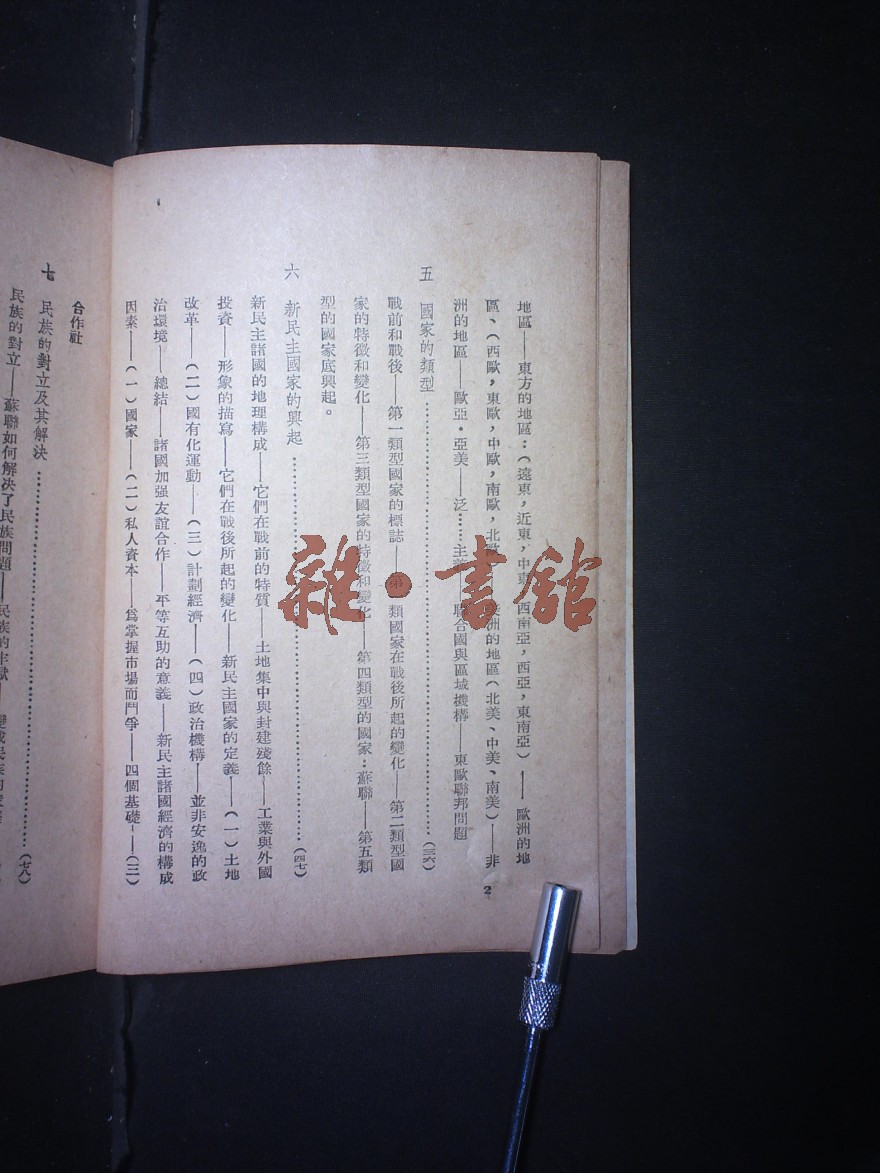 地區——東方的地區：（遠東，近東，中東，西南亞，西亞，東南亞）——歐洲的地
區、（西歐，東歐，中歐，南歐，北歐 洲的地區（北美、中美、南美）——非
洲的地區——歐亞・亞美——泛……主義——聯合國與區域機構——東歐聯邦問題
五 國家的類型……（三六）
戰前和戰後——第一類型國家的標誌——第一類國家在戰後所起的變化——第二類型國
家的特徵和變化——第三類型國家的特徵和變化——第四類型的國家：蘇聯——第五類
型的國家底興起。
六 新民主國家的興起……（四七）
新民主諸國的地理構成——它們在戰前的特質——土地集中與封建殘餘——工業與外國
投資——形象的描寫——它們在戰後所起的變化——新民主國家的定義——（一）土地
改革——（二）國有化運動——（三）計劃經濟——（四）政治機構——並非安逸的政
治環境——總結——諸國加强友誼合作——平等互助的意義——新民主諸國經濟的構成
因素——（一）國家——（二）私人資本——爲掌握市場而鬥爭——四個基礎——（三）
2
合作社
七 民族的對立及其解決……（七八）
民族的對立——蘇聯如何解決了民族問題——民族的牢獄——
雜・書館